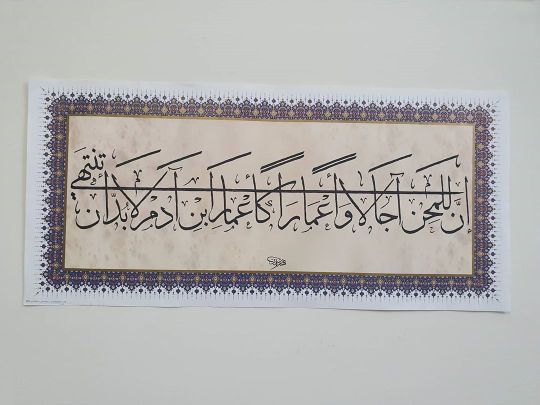 إنَّ للمحن آجالا وأعمارا كأعمار ابن آدم لابد أن تنتهي